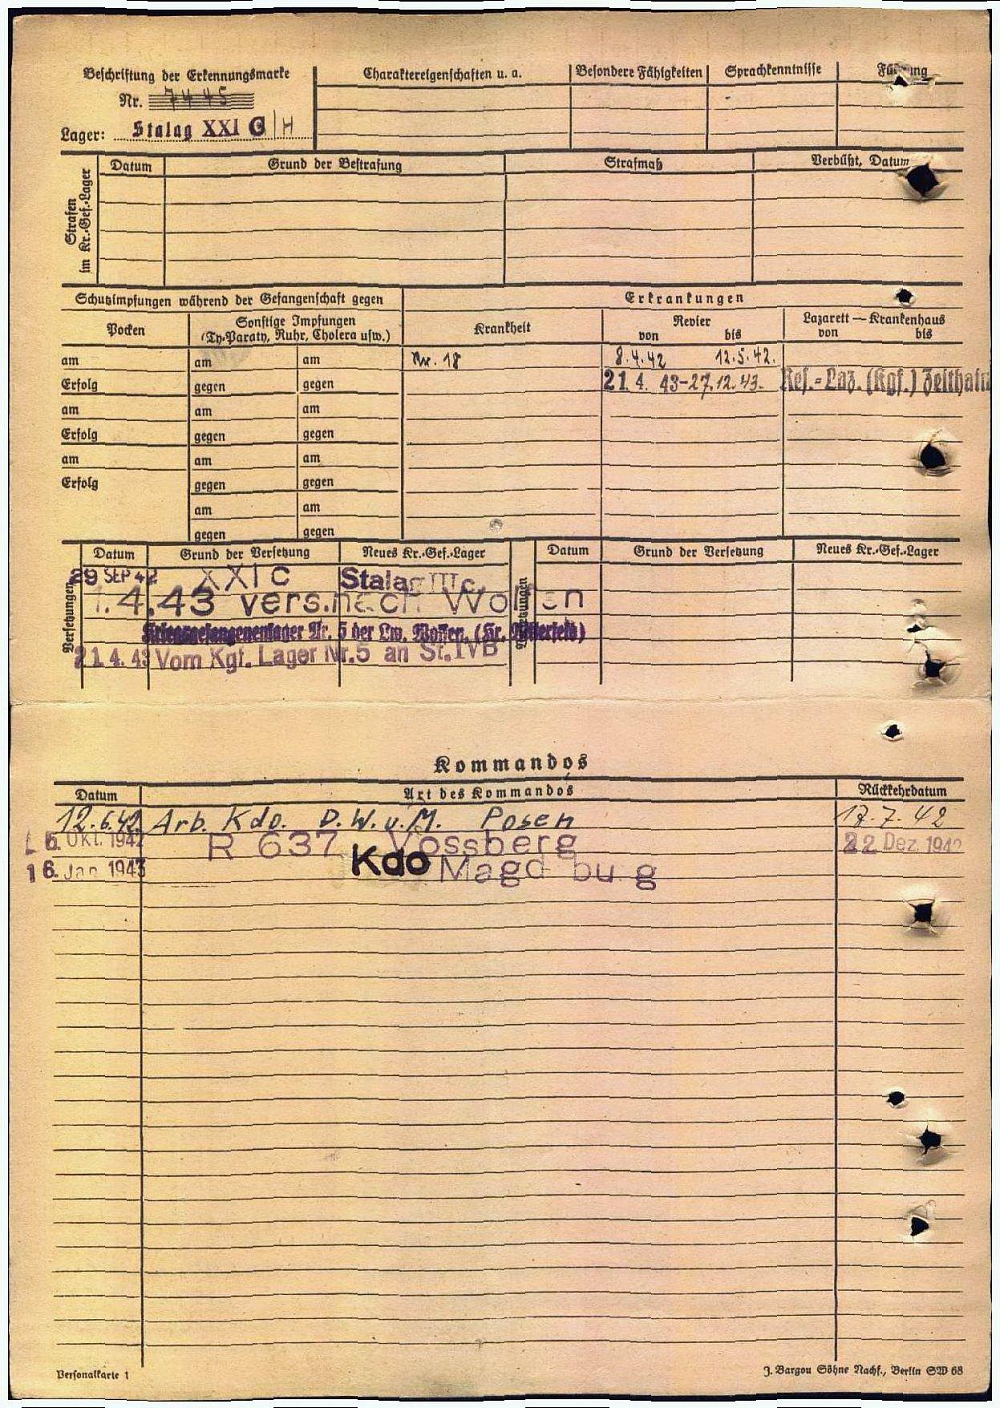 Beschriftung der Erkennungsmarke
Nr. 7445
Lager: Stalag XXI C/H
Charaktereigenschaften u. a.
Besondere Fähigkeiten
Sprachkenntnisse
Führung
Strafen im Kr.-Gef.-Lager
Datum
Grund der Bestrafung
Strafmaß
Verbüßt, Datum
Schutzimpfungen während der Gefangenschaft gegen
Erkrankungen
Pocken
Sonstige Impfungen
(Ty-Paraty, Ruhr, Cholera usw.)
Krankheit
Revier
von bis
Lazarett — Krankenhaus
von bis
am am am Nr. 18 8.4.42 12.5.42.
Erfolg gegen gegen 21.4.43-27.12.43. Res.-Laz. (Kgf.) Zeithain
am am am
Erfolg gegen gegen
am am am
Erfolg gegen gegen
am am
gegen gegen
Versetzungen
Datum Grund der Versetzung Neues Kr.-Gef.-Lager
Versetzungen
Datum Grund der Versetzung Neues Kr.-Gef.-Lager
29 SEP 42 XXI C Stalag III c.
1.4.43 vers.nach Wolfen
Kriegsgefangenenlager Nr. 5 der Lw. Wolfen, (Kr. Bitterfeld)
21.4.43 Vom Kgf. Lager Nr.5 an St.IVB
Kommandos
Datum Art des Kommandos Rückkehrdatum
12.6.42. Arb. Kdo. D.W.u.M. Posen 17.7.42
5. Okt. 1942 R 637 Vossberg 22 Dez. 1942
16. Jan 1943 Kdo Magd bu g
Personalkarte 1
J. Bargou Söhne Nachf., Berlin SW 68